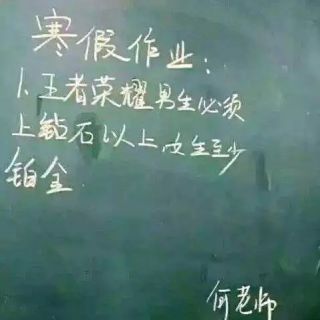 寒假作业：
1、王者荣耀男生必须
上钻石以上，女生至少
铂金
何老师